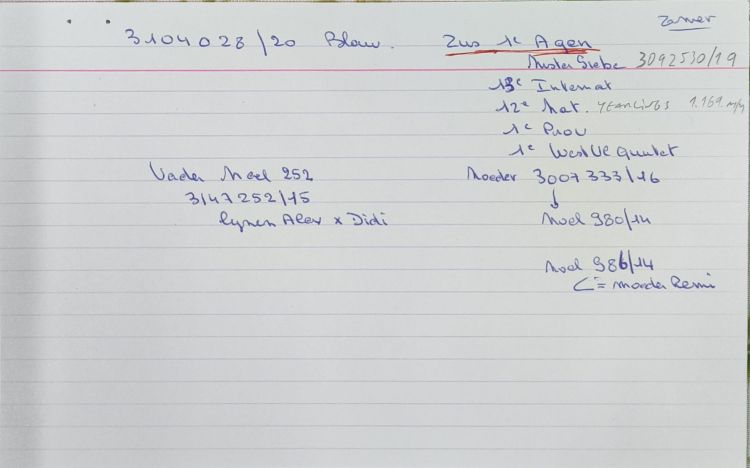 Zomer
3104028/20 Blauw. Zus 1e Agen
Mister Siebe 3092530/19
13e Internat
12e Nat. YEARLINGS 1.169 m/m
1e Prov
1e WestVl Quintet
Vader Noel 252 Moeder 3007333/16
3147252/15
Rynen Alex x Didi Noel 980/14
Noel 986/14
= moeder Remi